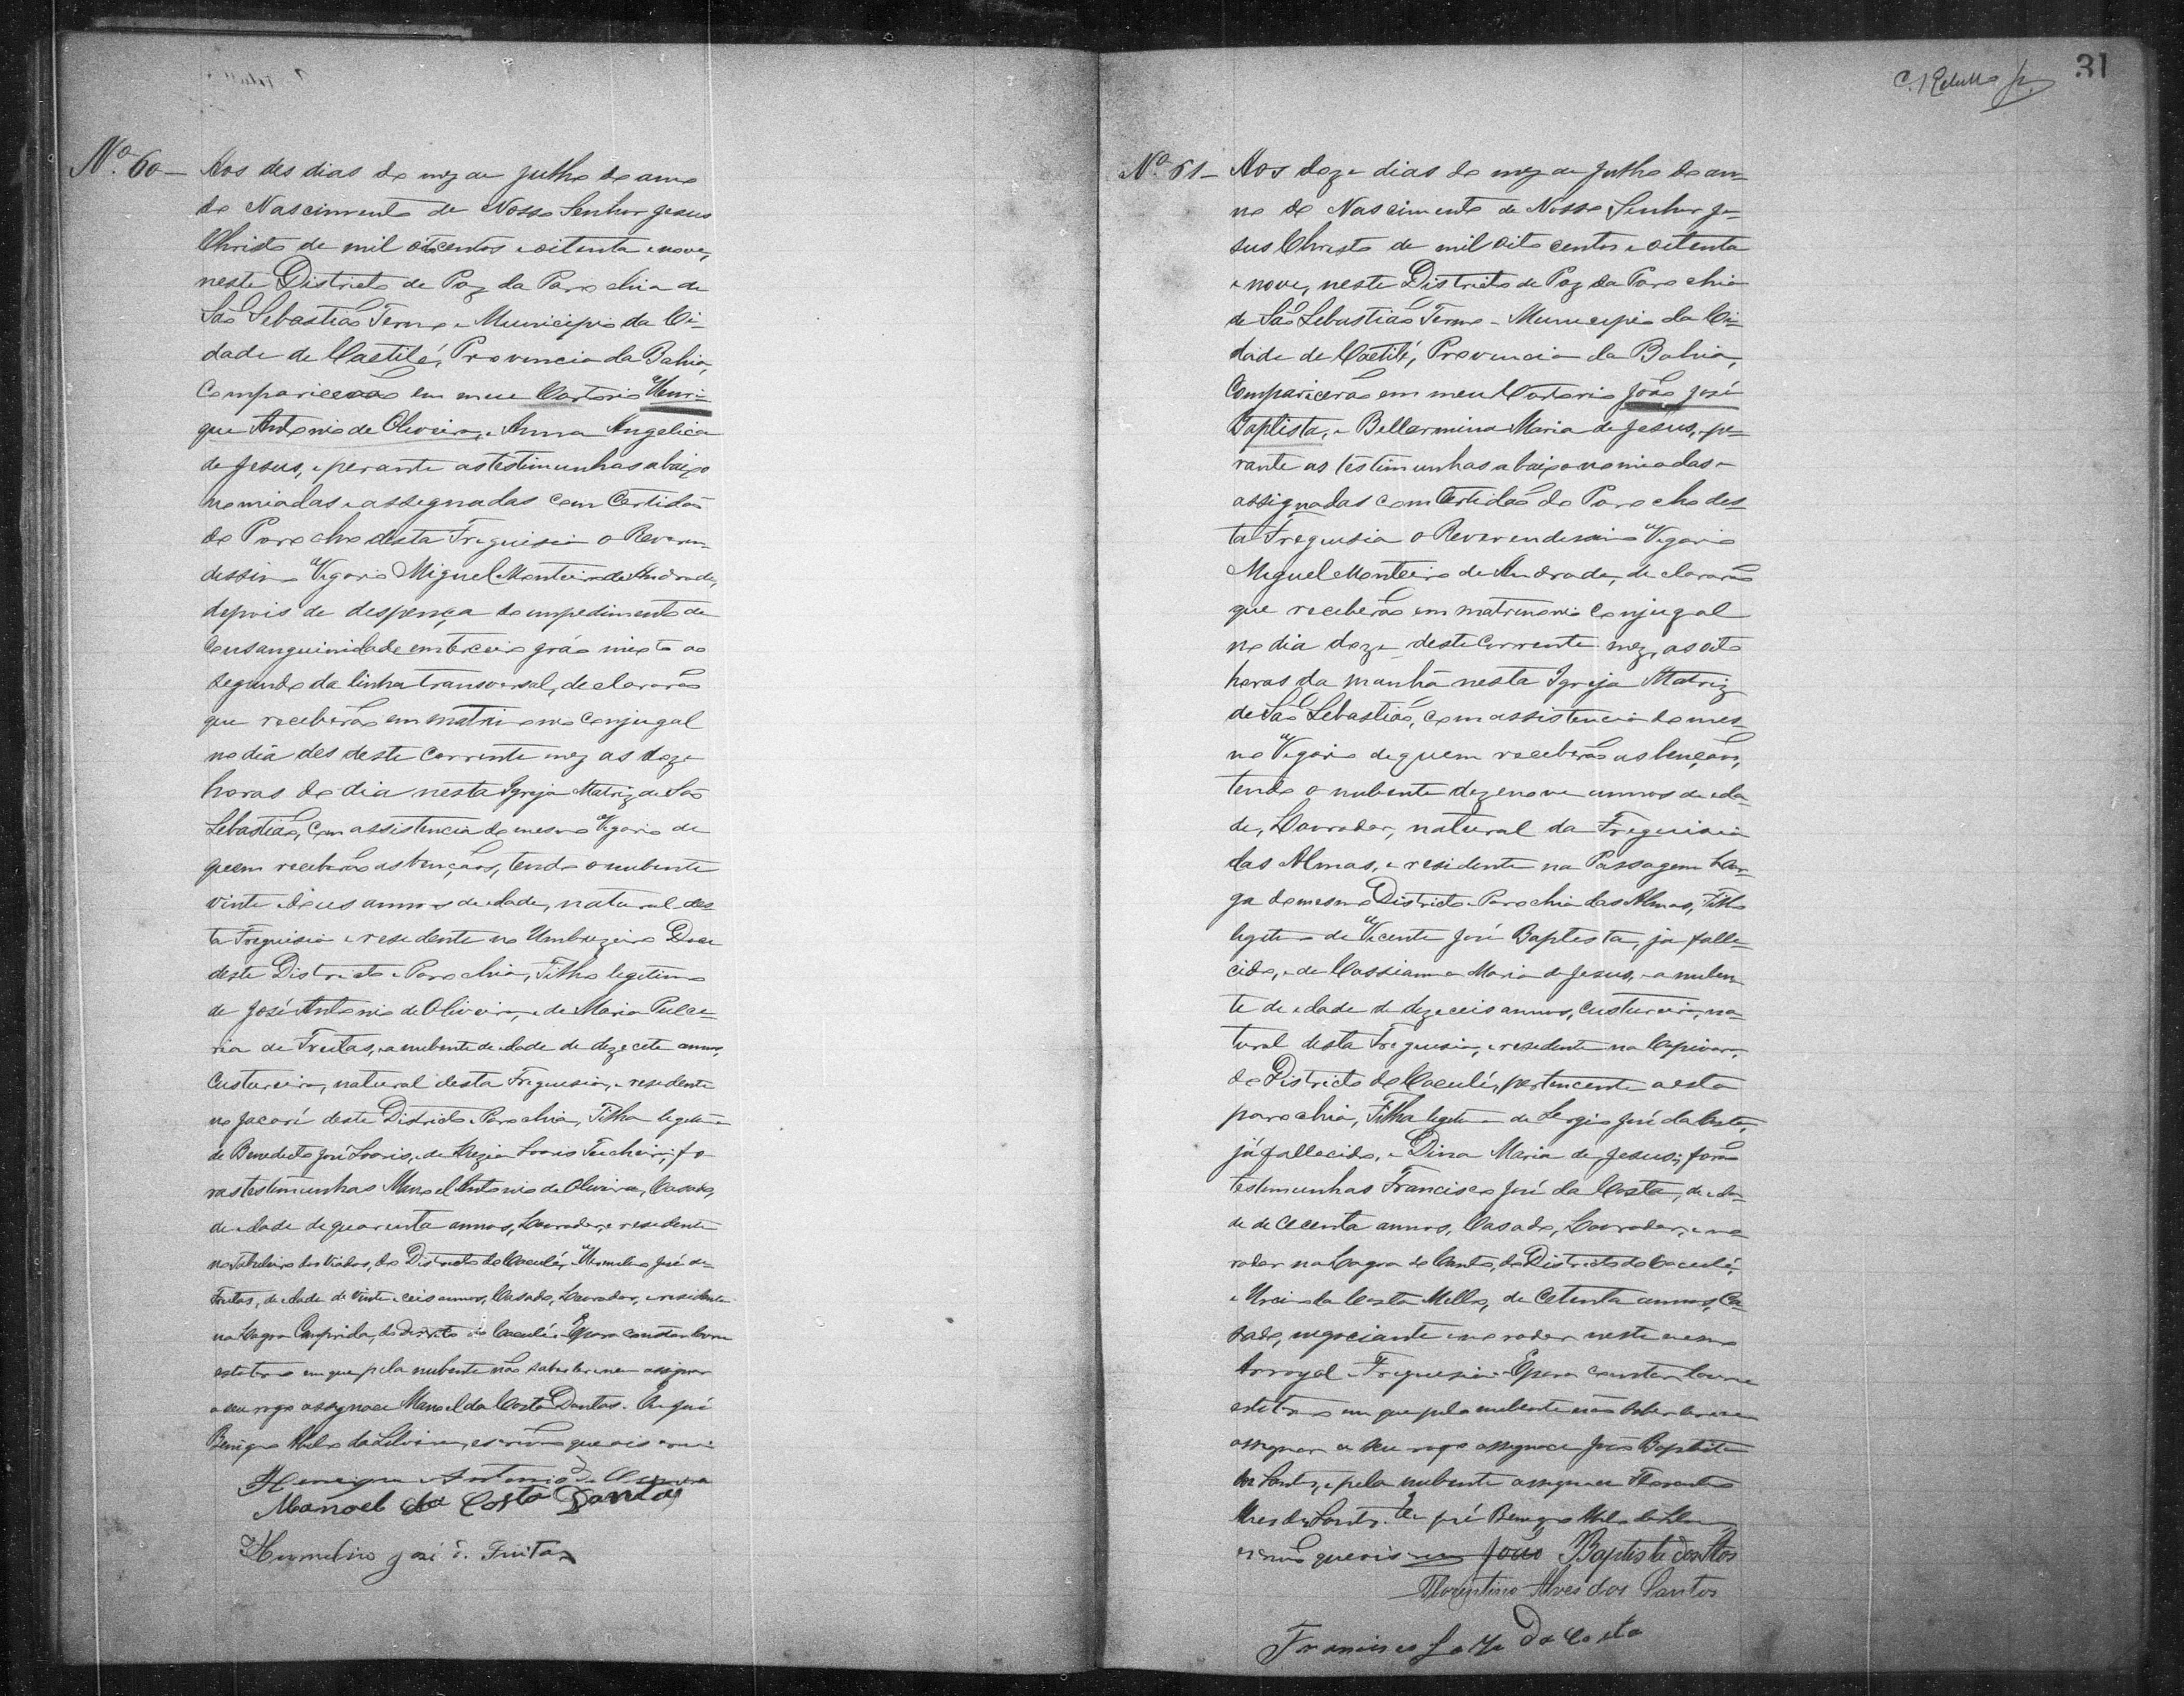 31
Nº 60 — Aos des dias do mez de Julho do anno
do Nascimento de Nosso Senhor Jesus
Christo de mil oitocentos e oitenta e nove,
neste Districto de Paz da Parochia de
São Sebastião Termo e Municipio da Ci-
dade de Caetité, Provincia da Bahia,
comparicerão em meu Cartorio Henri-
que Antonio de Oliveira, e Anna Angelica
de Jesus, e perante as testimunhas abaixo
nomiadas e assegnadas com Certidão
do Parocho desta Freguisia o Reveren-
dessimo Vigario Miguel Monteiro de Andrade,
depois de despença do impedimento de
Consanguinidade em terceiro gráo mixto ao
segundo da linha transversal, declararão
que receberão em matrimonio conjugal
no dia des deste corrente mez as doze
horas do dia nesta Igreja Matriz de São
Sebastião, com assistencia do mesmo Vigario de
quem receberão as bençãos, tendo o nubente
vinte e dous annos de idade, natural des-
ta Freguisia e residente no Umbuzeiro Doce
deste Districto e Parochia, Filho legitimo
de José Antonio de Oliveira, e de Maria Pulce-
ria de Freitas, e a nubente de idade de dezecete annos,
Custureira, natural desta Freguisia, e residente
no Jacaré deste Districto e Parochia, Filha legitima
de Benedicto José, e de; fo-
rão testimunhas Manoel Antonio de Oliveira, Casado,
de idade de quarenta annos, Lavrador, e residente
no Taboleiro dos Viados, do Districto do Caculé, e Hermelino José de
Freitas, de idade de vinte e ceis annos, Casado, Lavrador, e residente
na Lagoa Comprida, do Districto do Caculé. E para constar lavrei
este termo em que pela nubente não saber ler e nem assignar
a seu rogo assignou Manoel da Costa Dantas. Eu José
Benigno da Silveira, escrivão que o escrevi
Henrique Antonio de Oliveira
Manoel da Costa Dantas
Hermelino José d. Freitas
Nº 61 — Aos doze dias do mez de Julho do an-
no do Nascimento de Nosso Senhor Je-
sus Christo de mil oito centos e oitenta
e nove, neste Districto de Paz da Parochia
de São Sebastião Termo e Municipio da Ci-
dade de Caetité, Provincia da Bahia,
Comparicerão em meu Cartorio João José
Baptista, e Bellarmina Maria de Jesus, e pe-
rante as testimunhas abaixo nomiadas e
assignadas com Certidão do Parocho des-
ta Freguisia o Reverendissimo Vigario
Miguel Monteiro de Andrade, declararão
que receberão em matrimonio conjugal
no dia doze deste Corrente mez, as oito
horas da manhã nesta Igreja Matriz
de São Sebastião, com assistencia do mes-
mo Vigario de quem receberão as bençãos,
tendo o nubente dezenove annos de ida-
de, Lavrador, natural da Freguisia
das Almas, e residente na Passagem Lar-
ga do mesmo Districto e Parochia das Almas, Filho
legitimo de Vicente José Baptista, já falle-
cido, e de Cassianna Maria de Jesus, e a nuben-
te de idade de dezeceis annos, custureira, na-
tural desta Freguisia, e residente na Capivara,
do Districto do Caculé, pertencente a esta
parochia, Filha legitima de Sergio José da Costa,
já fallecido, e Dina Maria de Jesus; forão
testimunhas Francisco José da Costa, de ida-
de de cecenta annos, Casado, Lavrador, e mo-
rador na Lagoa do Canto, do Districto do Caculé,
e da Costa Mello, de Cetenta annos, Ca-
sado, negociante e morador neste mesmo
Arrayal e Freguisia. E para constar lavrei
este termo em que pelo nubente não saber ler e nem
assignar a seu rogo assignou João Baptista
dos Santos, e pela nubente assignou Florentino
Alves dos Santos. Eu José Benigno
escrivão que o escrevi João Baptista dos Stos
Florentino Alves dos Santos
Francisco Joze Da Costa